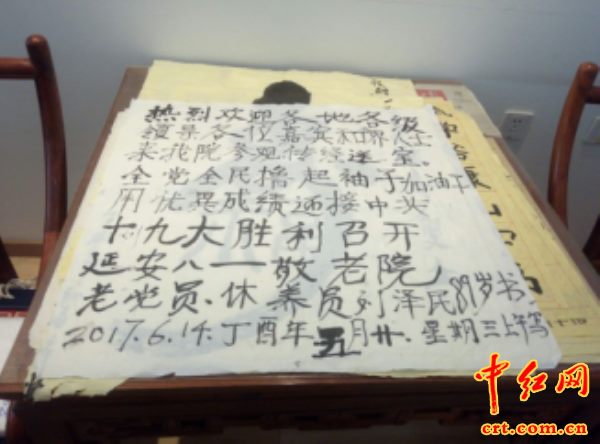 热烈欢迎各地各级
领导各位嘉宾和界人士
来我院参观传经送宝。
全党全民撸起袖子加油干
用优异成绩迎接中央
十九大胜利召开
延安八一敬老院
老党员、休养员刘泽民89岁书
2017.6.14.丁酉年五月廿.星期三上午写
中红网
crt.com.cn